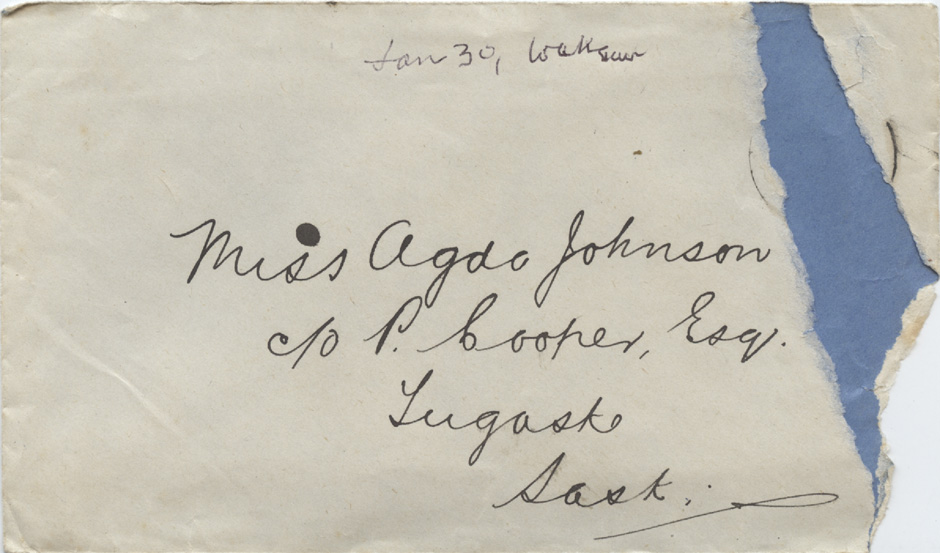 Jan 30, Watkson
Miss Agda Johnson
c/o P. Cooper, Esq.
Tugaske
Sask.